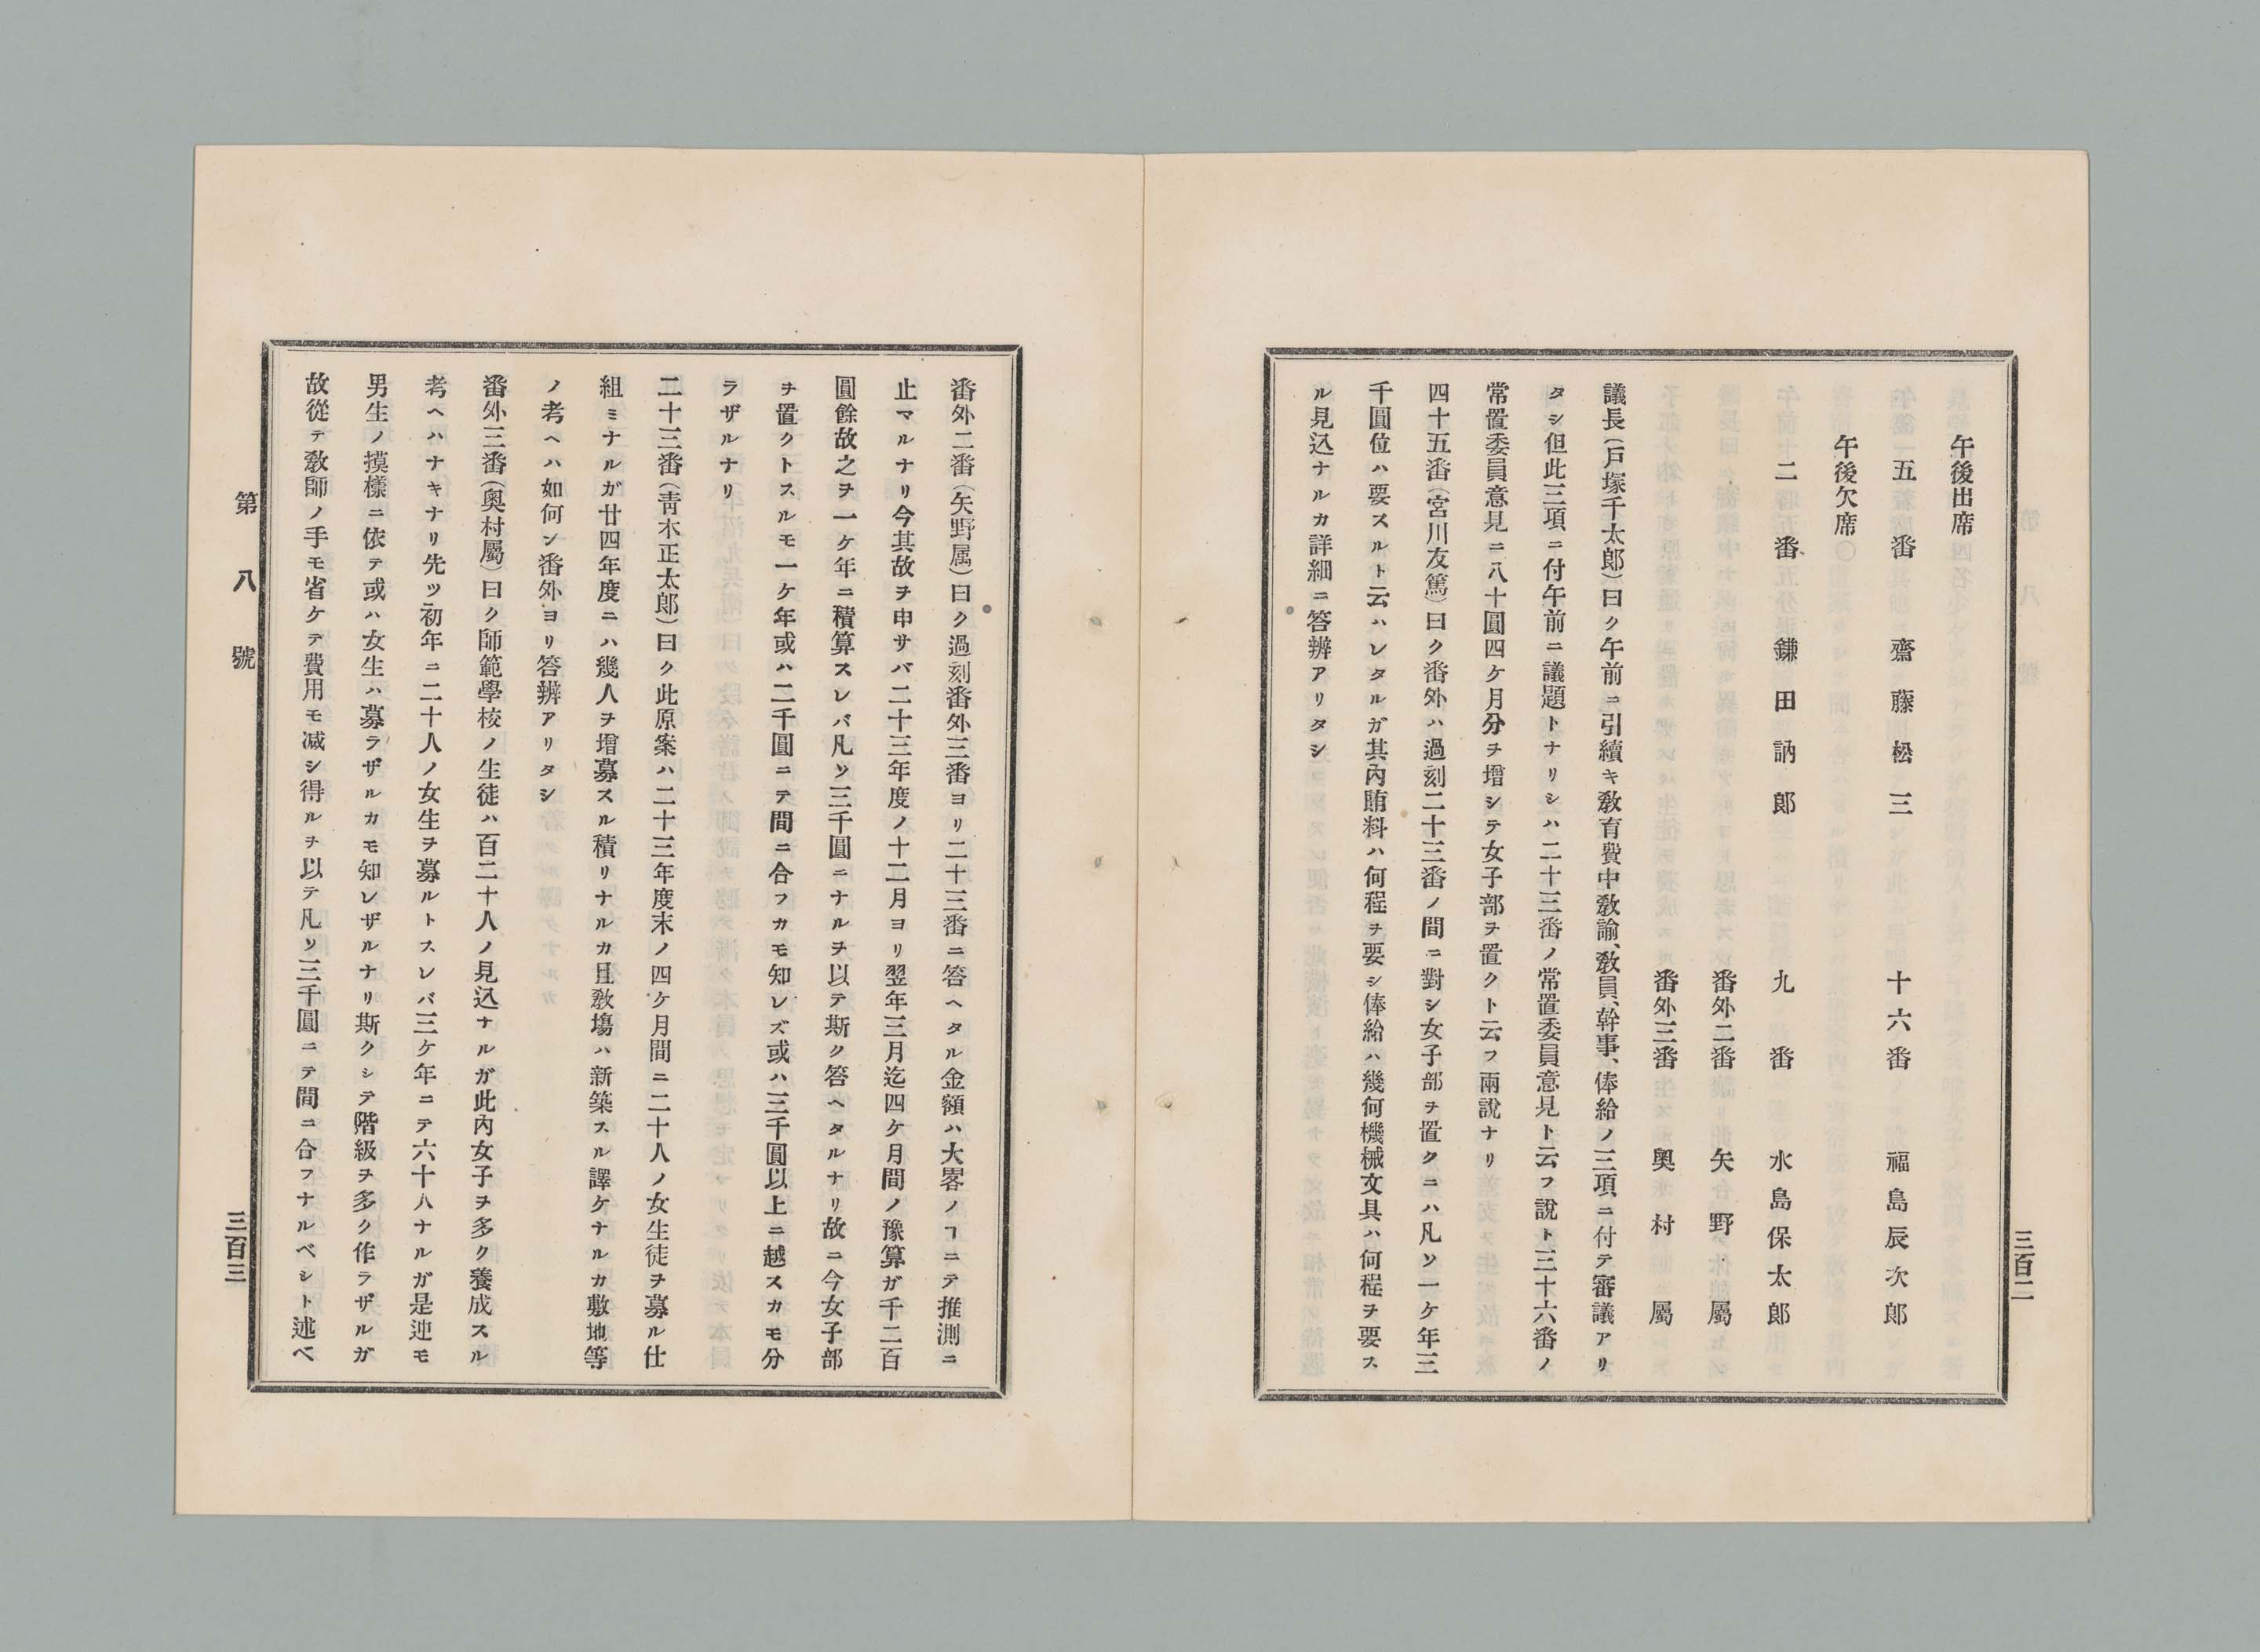 三百二
午後出席
五番 齋藤松三 十六番 福島辰次郎
午後欠席
二番 鎌田訥郎 九番 水島保太郎
番外二番 矢野屬
番外三番 奧村屬
議長(戸塚千太郎)曰ク午前ニ引續キ敎育費中敎諭、敎員、幹事、俸給ノ三項ニ付テ審議アリ
タシ但此三項ニ付午前ニ議題トナリシハ二十三番ノ常置委員意見ト云フ說ト三十六番ノ
常置委員意見ニ八十圓四ケ月分ヲ增シテ女子部ヲ置クト云フ兩說ナリ
四十五番(宮川友篤)曰ク番外ハ過刻二十三番ノ間ニ對シ女子部ヲ置クニハ凡ソ一ケ年三
千圓位ハ要スルト云ハレタルガ其內賄料ハ何程ヲ要シ俸給ハ幾何機械文具ハ何程ヲ要ス
ル見込ナルカ詳細ニ答辨アリタシ
番外二番(矢野属)曰ク過刻番外三番ヨリ二十三番ニ答ヘタル金額ハ大畧ノヿニテ推測ニ
止マルナリ今其故ヲ申サバ二十三年度ノ十二月ヨリ翌年三月迄四ケ月間ノ豫算ガ千二百
圓餘故之ヲ一ケ年ニ積算スレバ凡ソ三千圓ニナルヲ以テ斯ク答ヘタルナリ故ニ今女子部
ヲ置クトスルモ一ケ年或ハ二千圓ニテ間ニ合フカモ知レズ或ハ三千圓以上ニ越スカモ分
ラザルナリ
二十三番(靑木正太郎)曰ク此原案ハ二十三年度末ノ四ケ月間ニ二十人ノ女生徒ヲ募ル仕
組ミナルガ廿四年度ニハ幾人ヲ增募スル積リナルカ且敎塲ハ新築スル譯ケナルカ敷地等
ノ考ヘハ如何ン番外ヨリ答辨アリタシ
番外三番(奧村屬)曰ク師範學校ノ生徒ハ百二十人ノ見込ナルガ此內女子ヲ多ク養成スル
考ヘハナキナリ先ツ初年ニ二十人ノ女生ヲ募ルトスレバ三ケ年ニテ六十人ナルガ是迚モ
男生ノ摸樣ニ依テ或ハ女生ハ募ラザルカモ知レザルナリ斯クシテ階級ヲ多ク作ラザルガ
故從テ敎師ノ手モ省ケテ費用モ减シ得ルヲ以テ凡ソ三千圓ニテ間ニ合フナルベシト述ベ
第八號
三百三